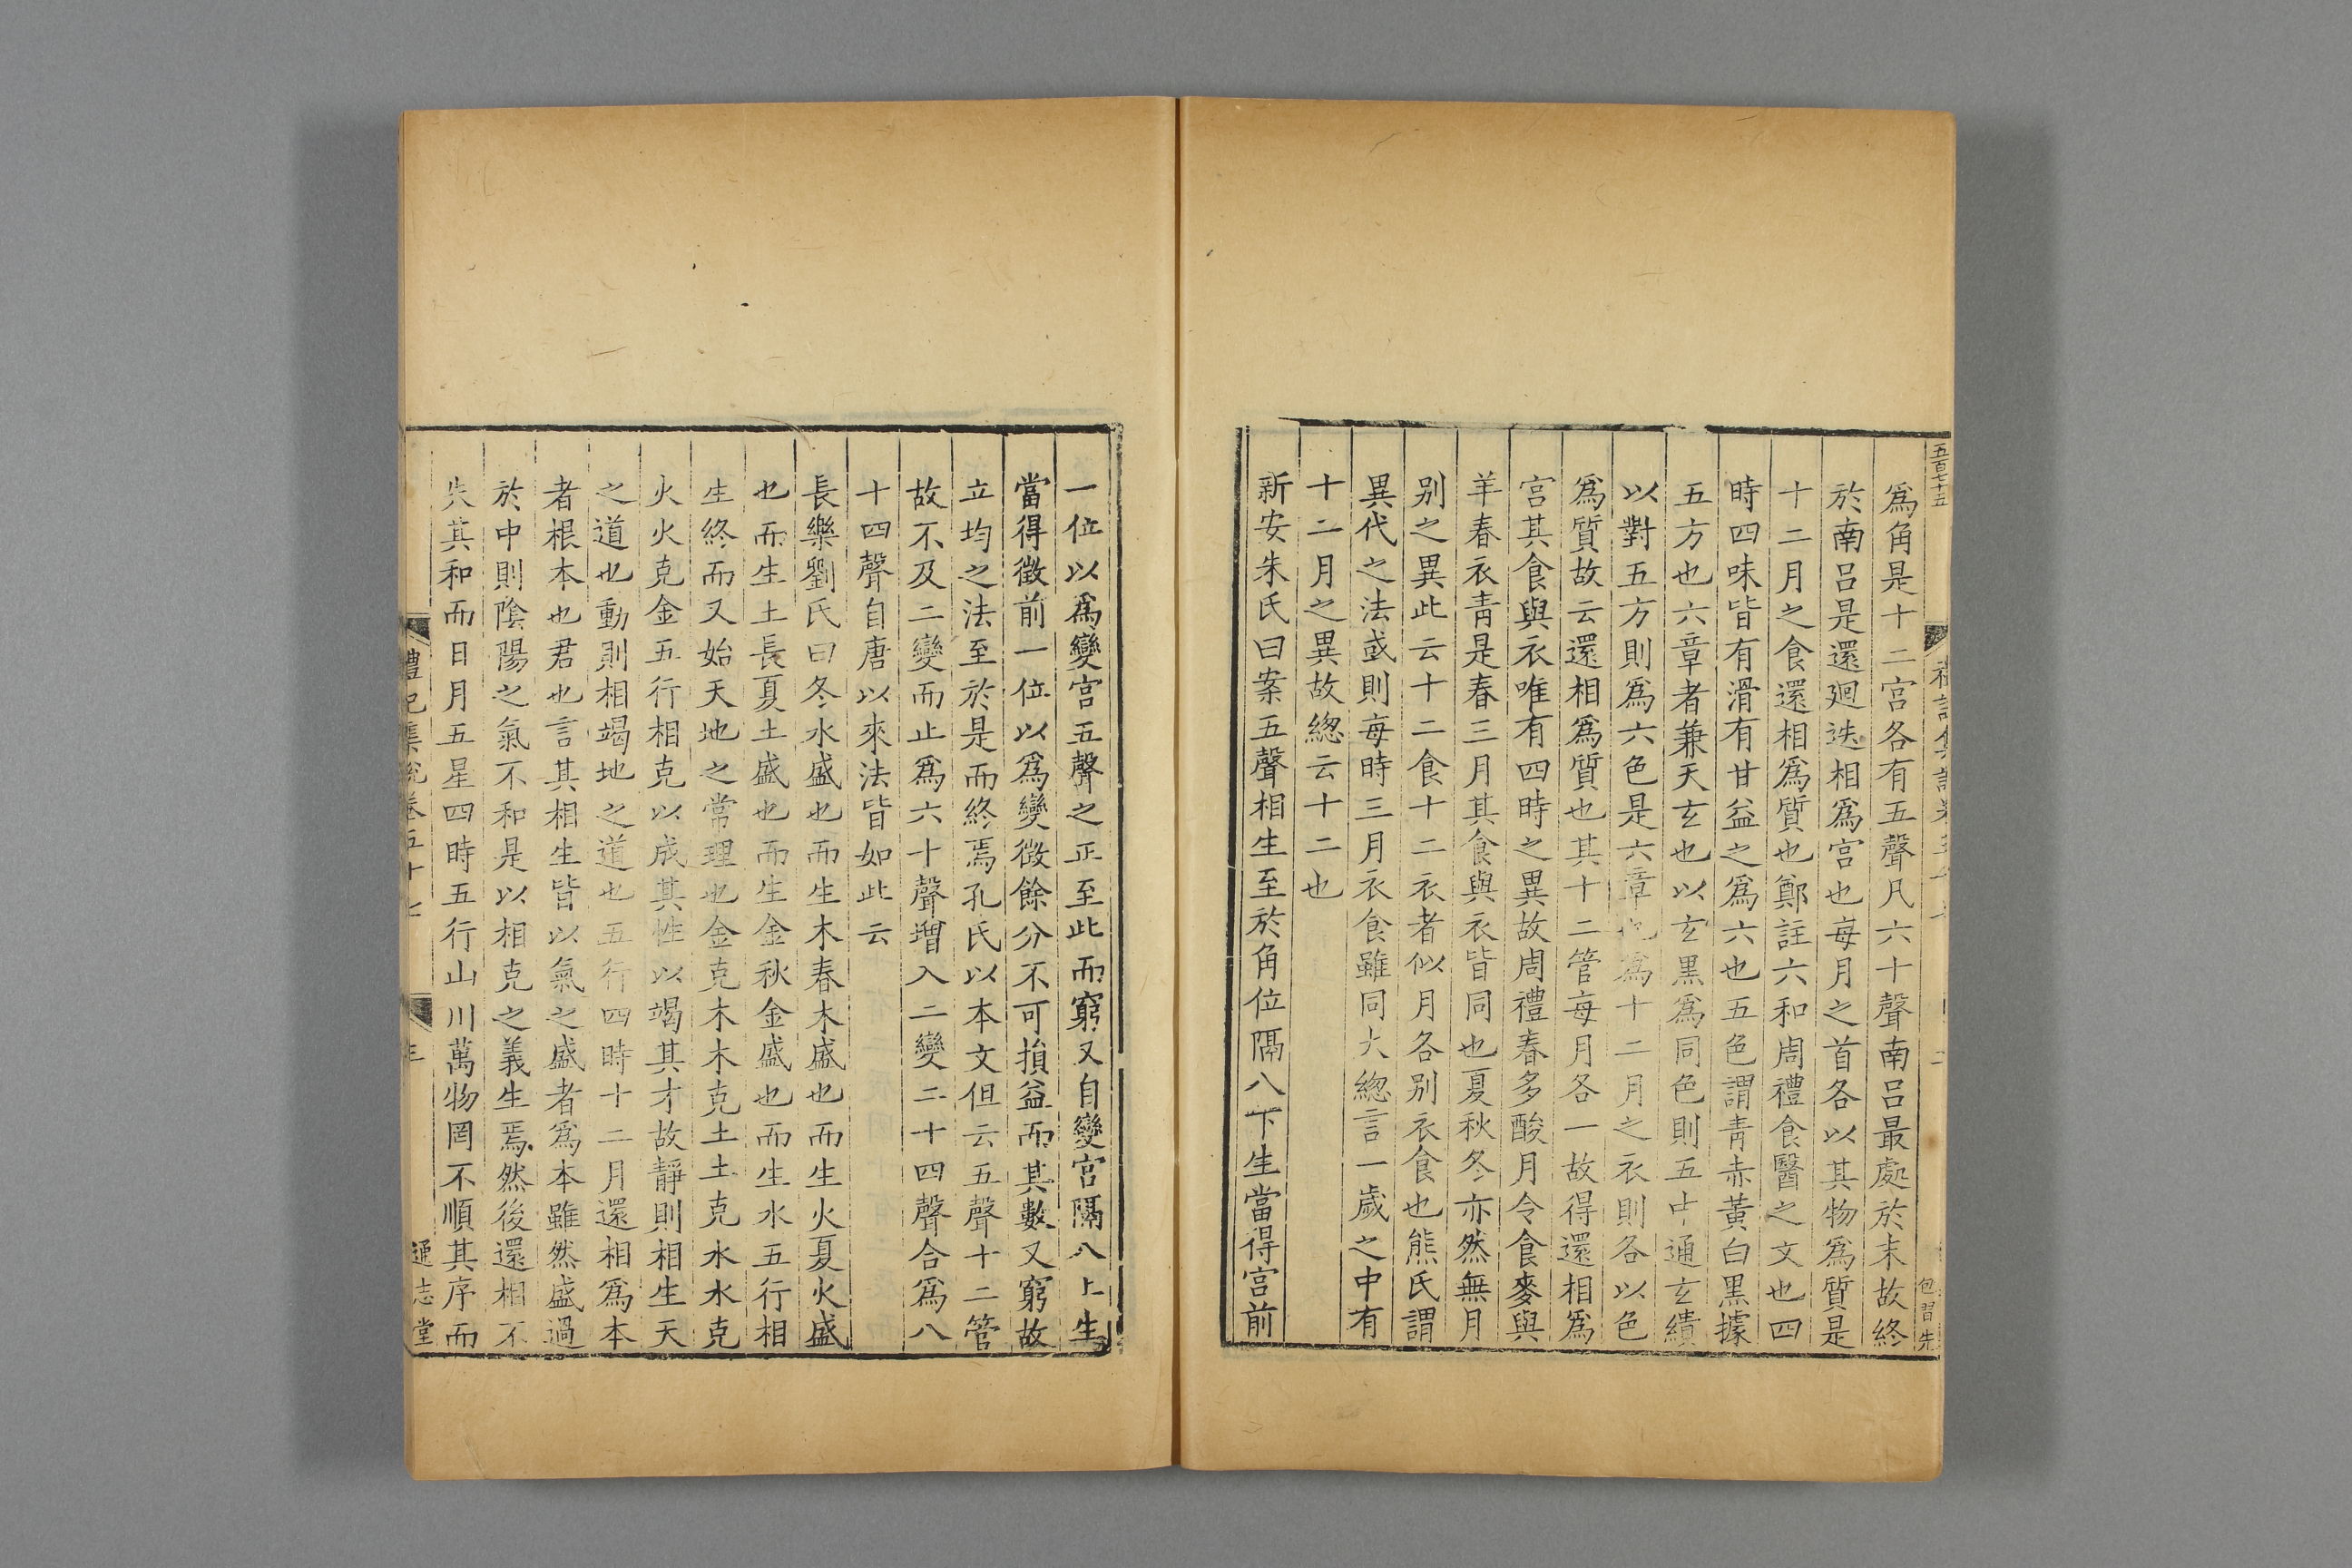 五百七十五
包習先
爲角是十二宮各有五聲凡六十聲南呂最處於末故終
於南呂是還廻迭相爲宮也每月之首各以其物爲質是
十二月之食還相爲質也鄭註六和周禮食醫之文也四
時四味皆有滑有甘益之爲六也五色謂青赤黃白黑據
五方也六章者兼天玄也以玄黑爲同色則五中通玄繢
以對五方則爲六色是六章也爲十二月之衣則各以色
爲質故云還相爲質也其十二管每月各一故得還相爲
宮其食與衣唯有四時之異故周禮春多酸月令食麥與
羊春衣青是春三月其食與衣皆同也夏秋冬亦然無月
别之異此云十二食十二衣者似月各别衣食也熊氏謂
異代之法或則每時三月衣食雖同大總言一歲之中有
十二月之異故總云十二也
新安朱氏曰案五聲相生至於角位隔八下生當得宮前
一位以爲變宮五聲之正至此而窮又自變宮隔八上生
當得徵前一位以爲變徵餘分不可損益而其數又窮故
立均之法至於是而終焉孔氏以本文但云五聲十二管
故不及二變而止爲六十聲增入二變二十四聲合爲八
十四聲自唐以來法皆如此云
長樂劉氏曰冬水盛也而生木春木盛也而生火夏火盛
也而生土長夏土盛也而生金秋金盛也而生水五行相
生終而又始天地之常理也金克木木克土土克水水克
火火克金五行相克以成其性以竭其才故靜則相生天
之道也動則相竭地之道也五行四時十二月還相爲本
者根本也君也言其相生皆以氣之盛者爲本雖然盛過
於中則陰陽之氣不和是以相克之義生焉然後還相不
失其和而日月五星四時五行山川萬物罔不順其序而
禮記集說卷五十七
通志堂